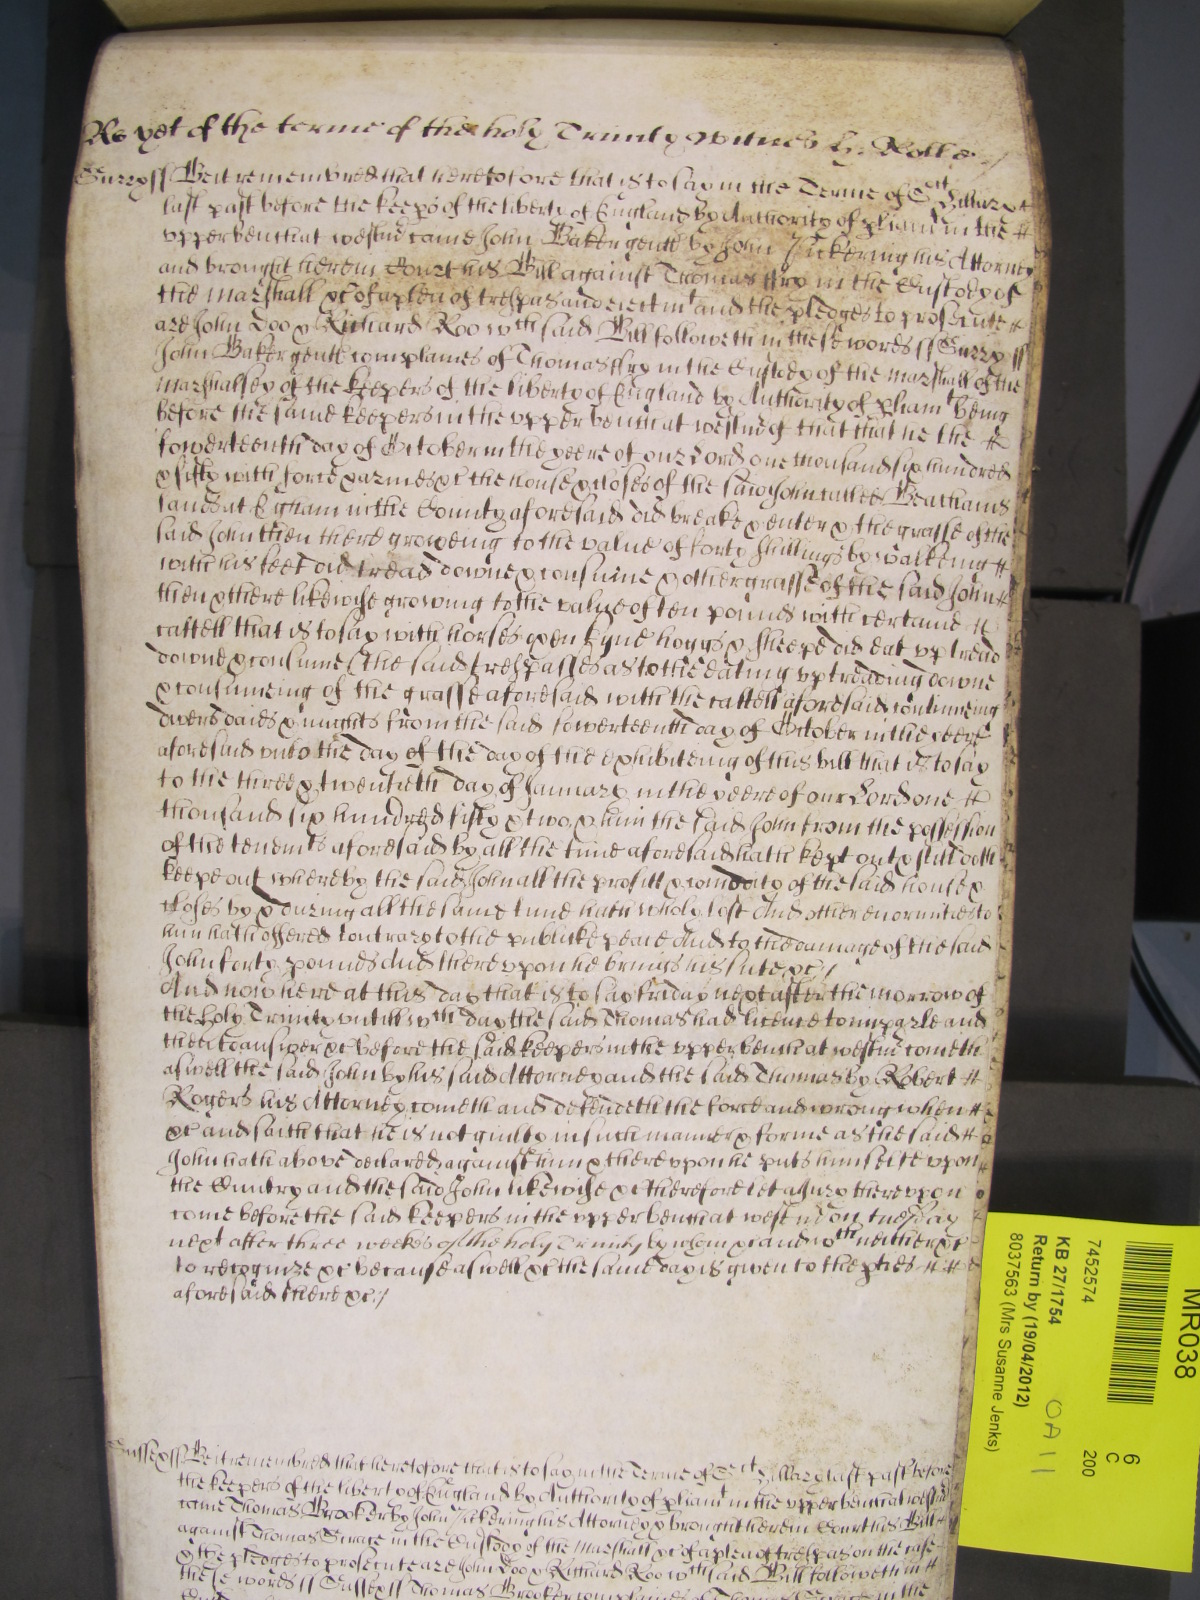 As yet of the terme of the holy Trinity Witnes H: Rolle
Surry ss Be it remembred that heretofore that is to say in the Terme of Sct Hillary
last past before the keeps of the liberty of England by Authority of pliamt in the
upper bench at westmr came John Baker gentl by John Pickering his Attorney
and brought here in Court his Bill against Thomas ffry in the Custody of
the Marshall &c of a plea of trespas and eiectmt and the pledges to prosecute
are John Doo & Richard Roo wch said Bill followeth in these words ss Surry ss
John Baker gentl complaines of Thomas ffry in the Custody of the marshall of the
Marshalsey of the keepers of the liberty of England by Authority of pliamt being
before the same keepers in the upper bench at westmr of that that he the
fowerteenth day of October in the yeere of our Lord one thousand six hundred
& fifty with force & armes &c the house & closes of the said John called
lands at Egham in the County aforesaid did breake & enter & the grasse of the
said John then there groweing to the value of forty shillings by walkeing
with his feet did tread downe & consume & other grasse of the said John
then & there likewise growing to the value of ten pounds with certaine
cattell that is to say with horses oxen kyne hoggs & sheepe did eat up tread
downe & consume (the said trespasses as to the eating up treading downe
& consumeing of the grasse aforesaid with the cattell aforesaid continueing
divers daies & nights from the said fowerteenth day of October in the yeere
aforesaid unto the day of the day of the exhibiteing of this bill that is to say
to the three & twentieth day of January in the yeere of our Lord one
thousand six hundred fifty & two & him the said John from the possession
of the tenemts aforesaid by all the time aforesaid hath kept out & still doth
keepe out whereby the said John all the profitt & comodity of the said house &
closes by & during all the same time hath wholy lost And other enormities to
him hath offered contrary to the publicke peace And to the damage of the said
John forty pounds And thereupon he brings his sute &c /
And now here at this day that is to say friday next after the morrow of
the holy Trinity untill wch day the said Thomas had licence to imparle and
then to answer &c before the said keepers in the upper bench at westmr cometh
aswell the said John by his said Attorney and the said Thomas by Robert
Rogers his Attorney cometh and defendeth the force and wrong when
&c and saith that he is not guilty in such manner & forme as the said
John hath above declared against him & thereupon he puts himselfe upon
the Cuntry and the said John likewise &c therefore let a Jury thereupon
come before the said keepers in the upper bench at westmr on tuesday
next after three weekes of the holy Trinity by whom &c and wch neither &c
to recognize &c because aswell &c the same day is given to the pties
aforesaid there &c /
Sussex ss Be it remembred that heretofore that is to say in the Terme of Sct Hillary last past before
the keepers of the liberty of England by Authority of pliamt in the upper bench at westmr
came Thomas Brooker by John Pickering his Attorney & brought here in Court his Bill
against Thomas in the Custody of the Marshall &c of a plea of trespas on the case
& the pledges to prosecute are John Doo & Richard Roo wch said Bill followeth in
these words ss Sussex ss Thomas Brooker complaines of Thomas in the
MR038
6
C
200
7452574
KB 27/1754
Return by (19/04/2012)
8037563 (Mrs Susanne Jenks)
OA 11